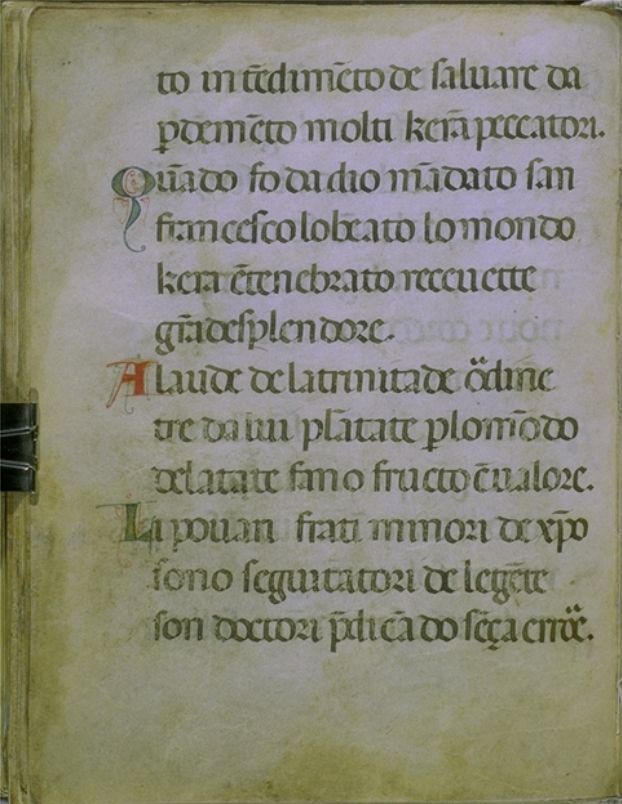 to in tēdimēto de saluare da
ꝑdemēto molti kerāpeccatori.
Quādo fo da dio mādato san
francesco lobeato lo mondo
kera ētenebrato receuette
grādesplendore.
A laude de latrinitade ordine
tre da lui plātate ꝑlomōdo
delatate fano fructo ēualore.
Li pouari frati minori de xp̄o
sono seguitatori de legēte
son doctori p̄dicādo sēça errore.